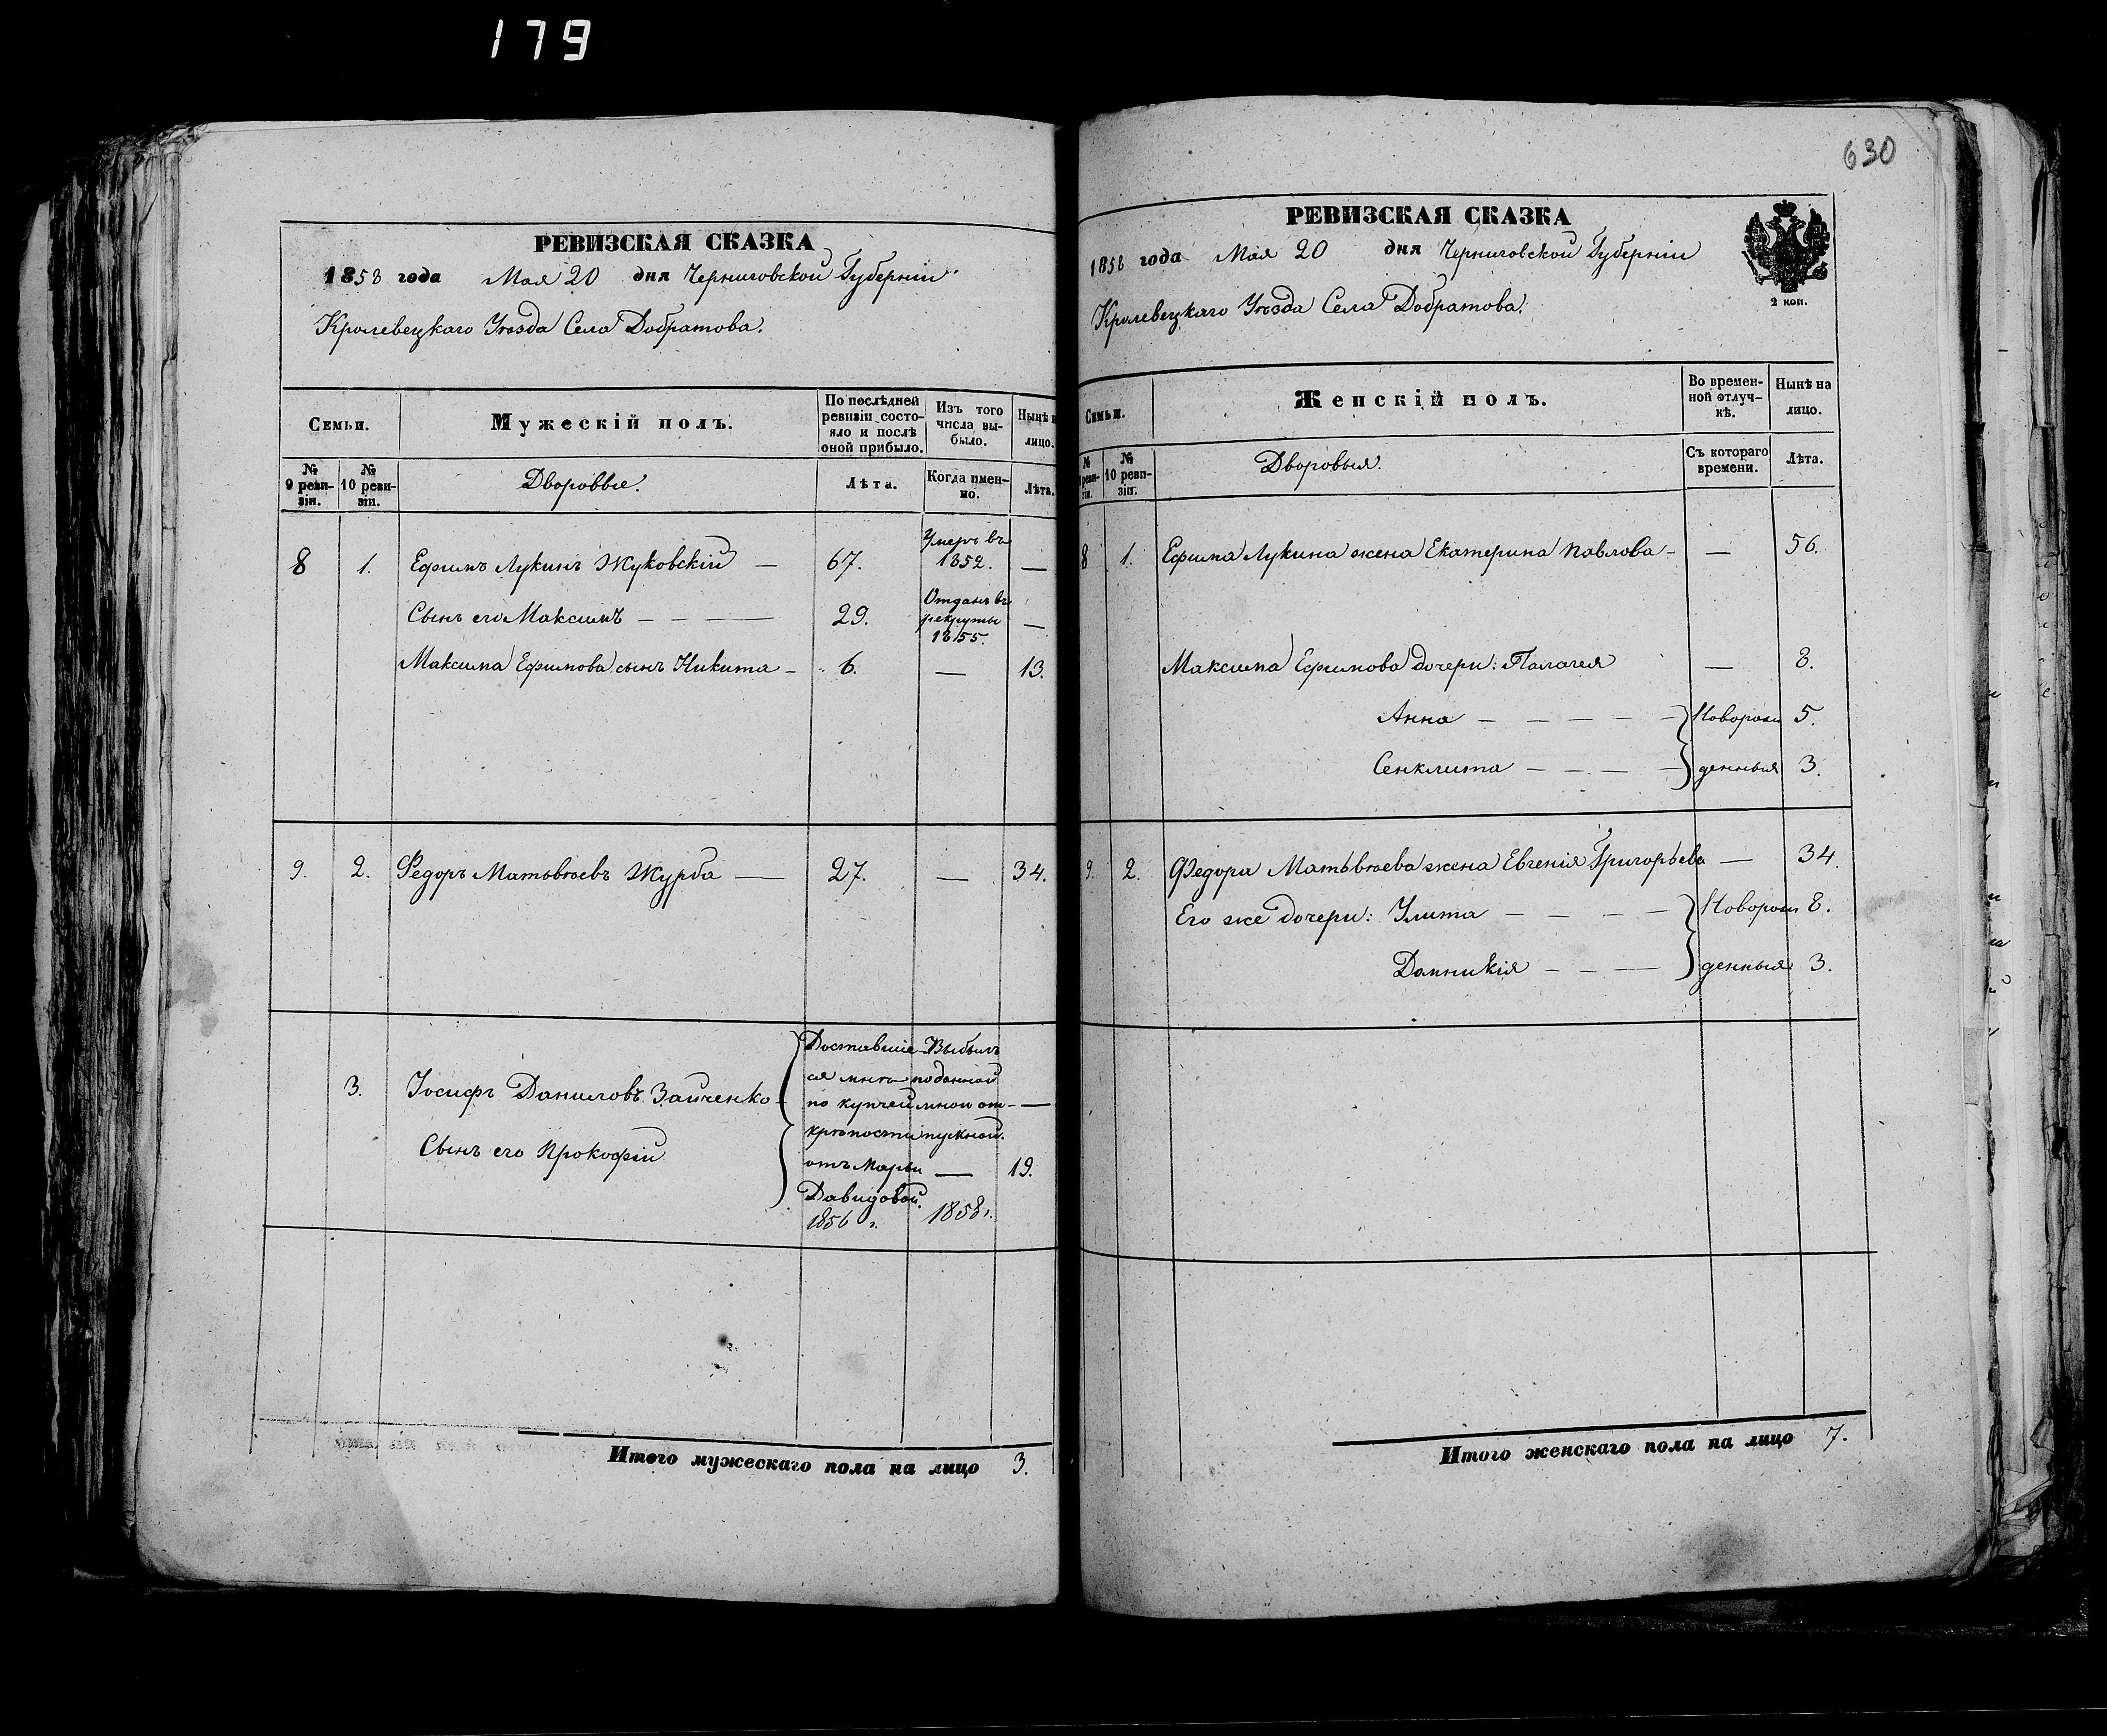 179
РЕВИЗСКАЯ СКАЗКА
1858 года Мая 20 дня Черниговской Губерніи
Кролевецкаго Уѣзда Села Добратова.
Семьи.
Мужескій полъ.
По послѣдней ревизіи состояло и послѣ оной прибыло.
Изъ того числа выбыло.
Нынѣ н
лицо.
№ 9 ревизіи.
№ 10 ревизіи.
Дворовые.
Лѣта.
Когда именно.
Лѣта.
8 1. Ефимъ Лукинъ Жуковскій — 67. Умеръ въ 1852. —
Сынъ его Максимъ — — — 29. Отданъ въ рекруты 1855. —
Максима Ефимова сынъ Никита — 6. — 13.
9. 2. Федоръ Матвѣевъ Журба — 27. — 34.
3. Іосифъ Даниловъ Зайченко — —
Сынъ его Прокофій — 19.
Доставшіе-
ся мнѣ
по купчей
крѣпости
отъ Марьи
Давидовой.
1856 г.
Выбылъ
по данной
мною от-
пускной.
1858 г.
Итого мужескаго пола на лицо 3.
630
РЕВИЗСКАЯ СКАЗКА
1858 года Мая 20 дня Черниговской Губерніи
2 коп.
Кролевецкаго Уѣзда Села Добратова.
Семьи.
Женскій полъ.
Во временной отлучкѣ.
Нынѣ на лицо.
№ 10 ревизіи.
Дворовыя.
Съ котораго времени.
Лѣта.
8 1. Ефима Лукина жена Екатерина Павлова — — 56.
Максима Ефимова дочери: Палагея — 8.
Анна — — — — — Новорож 5.
Сенклита — — — — денныя 3.
9. 2. Федора Матвѣева жена Евгенія Григорьева — 34.
Его же дочери: Улита — — — — Новорож 8.
Домникія — — — денныя 3.
Итого женскаго пола на лицо 7.